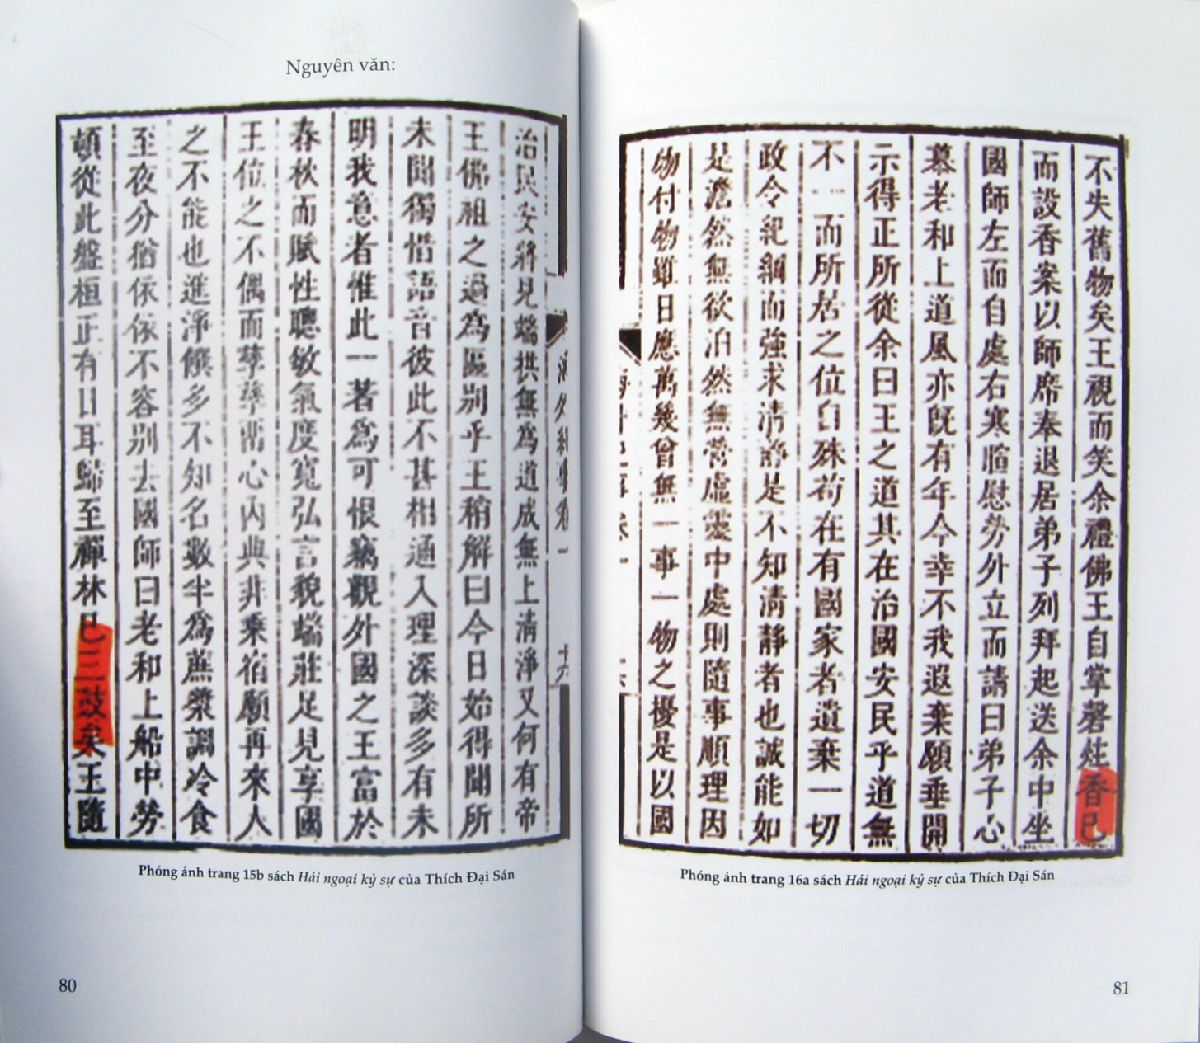 Nguyên văn:
海外紀事卷一
十六
治民安將見端拱無為道成無上清淨又何有帝
王佛祖之過為區別乎王稍解曰今日始得聞所
未聞獨惜語音彼此不甚相通入理深談多有未
明我意者惟此一著為可恨竊觀外國之王富於
春秋而賦性聰敏氣度寬弘言貌端莊足見享國
王位之不偶而孳孳留心內典非乘宿願再來人
之不能也進淨饌多不知名數半為蔗漿調冷食
至夜分猶依依不容別去國師曰老和上船中勞
頓從此盤桓正有日耳歸至禪林已三鼓矣王隨
Phóng ảnh trang 15b sách Hải ngoại kỷ sự của Thích Đại Sán
80
不失舊物矣王視而笑余禮佛王自掌磬炷香已
而設香案以師席奉退居弟子列拜起送余中坐
國師左而自處右寒暄慰勞外立而請曰弟子心
慕老和上道風亦既有年今幸不我遐棄願垂開
示得正所從余曰王之道其在治國安民乎道無
不一而所居之位自殊苟在有國家者遺棄一切
政令紀綱而強求清靜是不知清靜者也誠能如
是澹然無欲泊然無營虛靈中處則隨事順理因
物付物雖日應萬幾曾無一事一物之擾是以國
Phóng ảnh trang 16a sách Hải ngoại kỷ sự của Thích Đại Sán
81